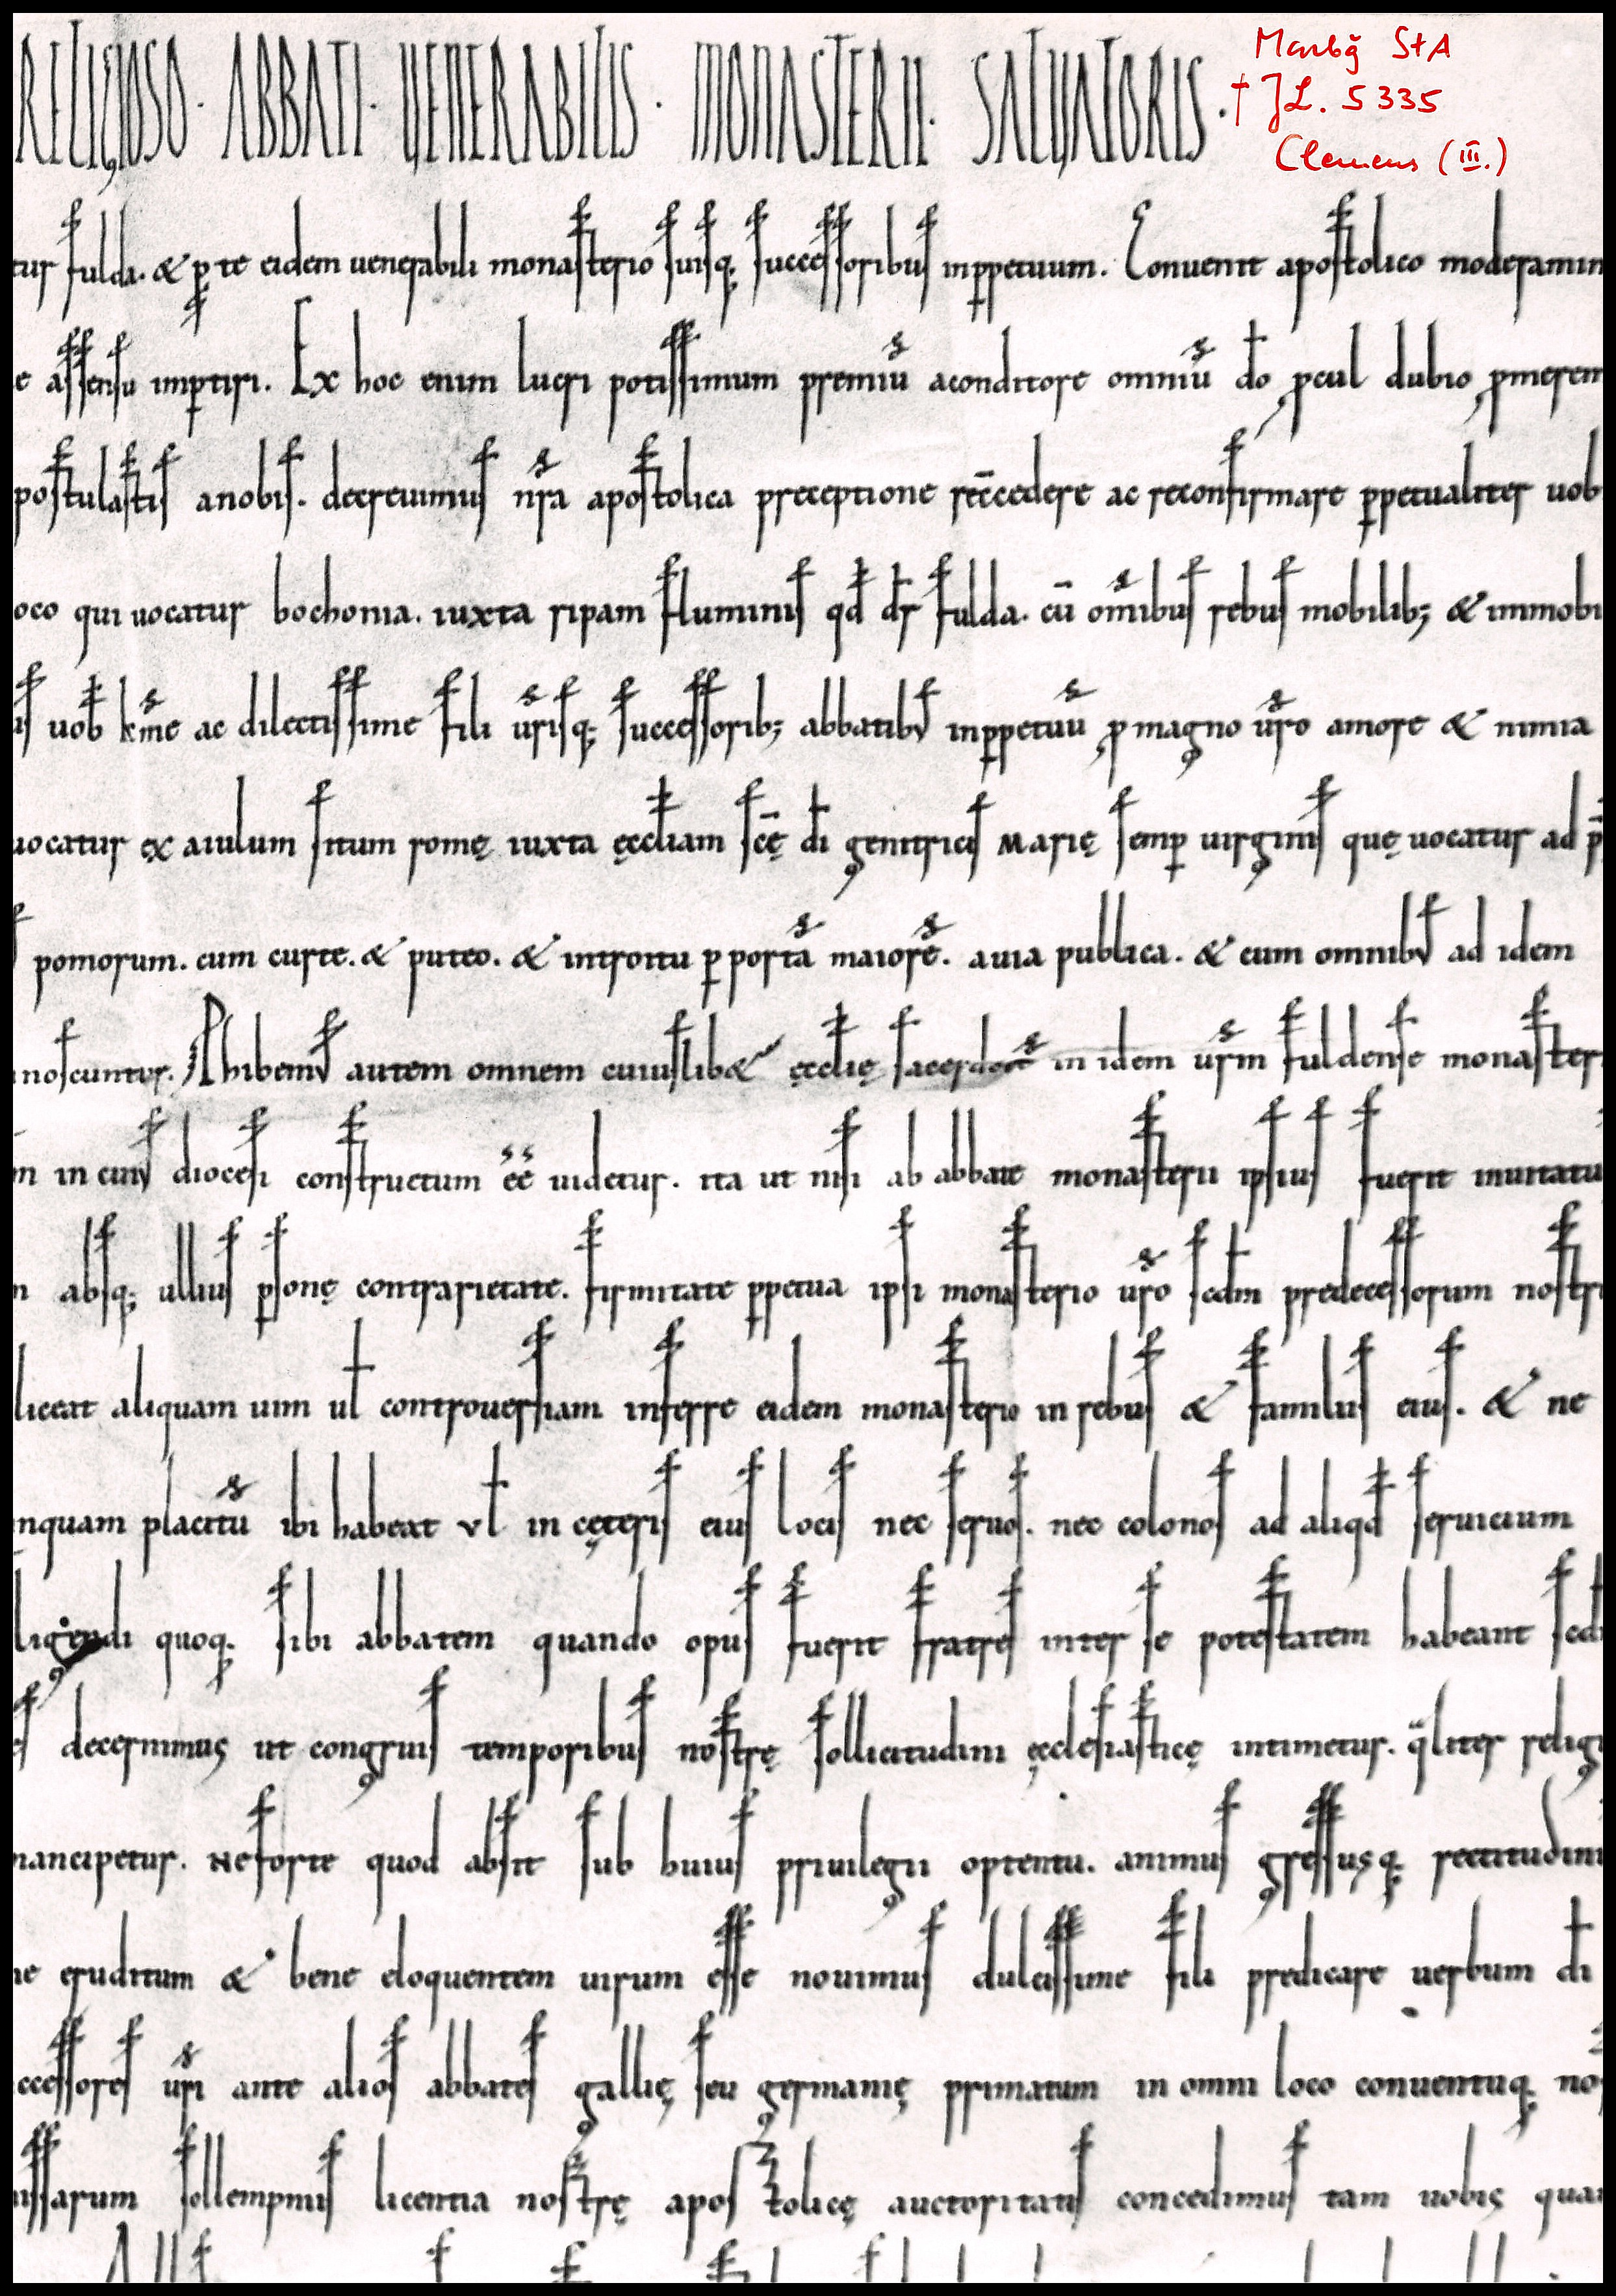 RELIGIOSO · ABBATI · UENERABILIS · MONASTERII · SALUATORIS ·
Marbg̃ StA
† JL. 5335
Clemens (III.)
tur fulda. & p̱ te eidem uenerabili monasterio suisq; successoribus inp̱petuum. Conuenit apostolico moderamin
e assensu imp̱tiri. Ex hoc enim lucri potissimum premiū aconditore omniū dō ꝓcul dubio ꝓmerem
postulastis anobis. decreuimus nr̃a apostolica preceptione rec̄cedere ac reconfirmare p̱petualiter uob
oco qui uocatur bochonia. iuxta ripam fluminis qđ dr̄ fulda. cū om̄ibus rebus mobilib; & immobi
is uob̄ km̄e ac dilectissime fili ur̃isq; successorib; abbatibus inp̱petuū ꝓ magno ur̃o amore & nimia
uocatur ex aiulum situm romę iuxta ęccłiam scę̄ dī genitricis Marię semp̱ uirginis quę uocatur ad p̄
pomorum. cum curte. & puteo. & introitu p̱ portā maiorē. auia publica. & cum omnibus ad idem
noscuntur. Ꝓhibemus autem omnem cuiuslib& ęccłię sacerdotē in idem ur̃m fuldense monaster
n in cuius diocesi constructum eē̄ uidetur. ita ut nisi ab abbate monasterii ipsius fuerit inuitatu
n absq; ullius p̱sonę contrarietate. firmitate p̱petua ipsi monasterio ur̃o scdm̄ predecessorum nostr
liceat aliquam uim ul̄ controuersiam inferre eidem monasterio in rebus & familiis eius. & ne
nquam placitū ibi habeat vl̄ in cęteris eius locis nec seruos. nec colonos ad aliqđ seruicium
ligendi quoq; sibi abbatem quando opus fuerit fratres inter se potestatem habeant scd
es decernimus ut congruis temporibus nostrę sollicitudini ęcclesiasticę intimetur. qͣliter relig
nancipetur. Neforte quod absit sub huius priuilegii optentu. animus gressusq; rectitudini
ne eruditum & bene eloquentem uirum esse nouimus dulcissime fili predicare uerbum dī
ccessores ur̃i ante alios abbates gallię seu germanię primatum in omni loco conuentuq; no
issarum sollempniis licentia nostrę apostolicę auctoritatis concedimus tam uobis qua